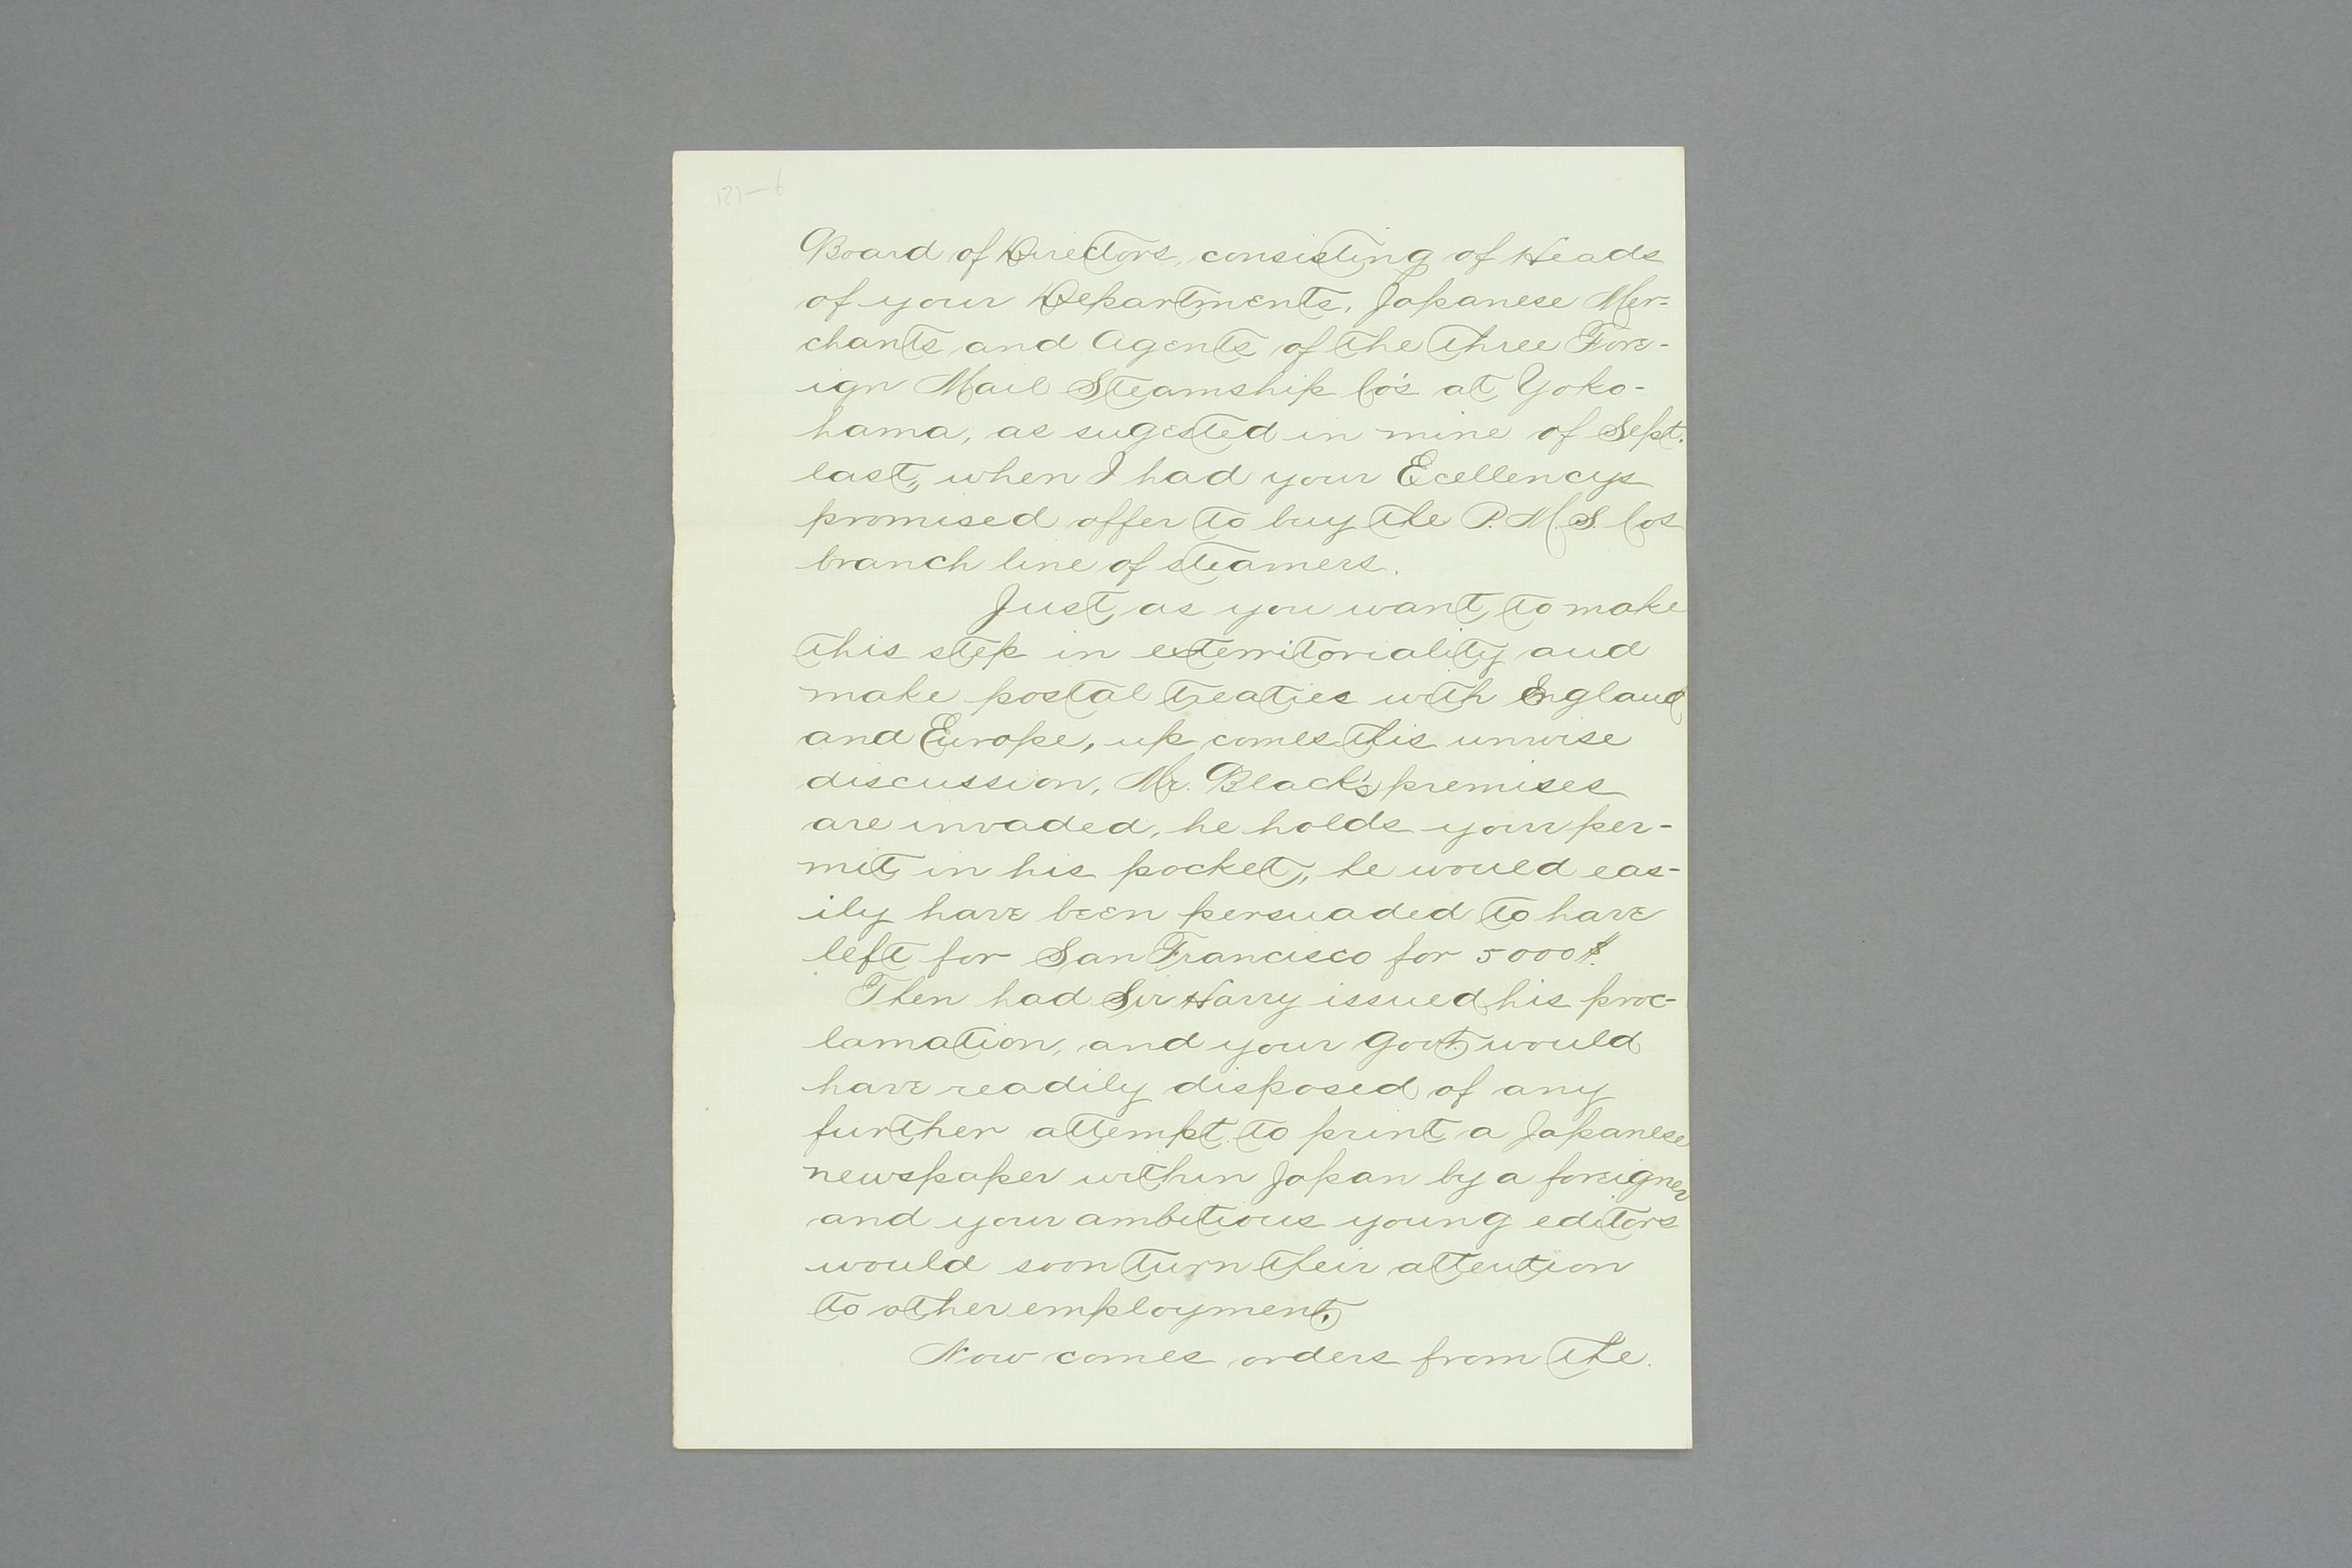 Board of Directors, consisting of Heads
of your Departments, Japanese Mer=
chants and Agents of the three Fore-
ign Mail Steamship Co's at Yoko-
hama, as sugested in mine of Sept.
last, when I had your Ecellencys
promised offer to buy the P. M. S. Cos
branch line of steamers.
Just as you want to make
this step in exterritoriality and
make postal treaties with England
and Europe, up comes this unwise
discussion, Mr. Black's premises
are invaded, he holds your per-
mit in his pocket, he would eas-
ily have been persuaded to have
left for San Francisco for 5000$.
Then had Sir Harry issued his proc-
lamation, and your Govt. would
have readily disposed of any
further attempt to print a Japanese
newspaper within Japan by a foreigner
and your ambitious young editors
would soon turn their attention
to other employment.
Now comes orders from the